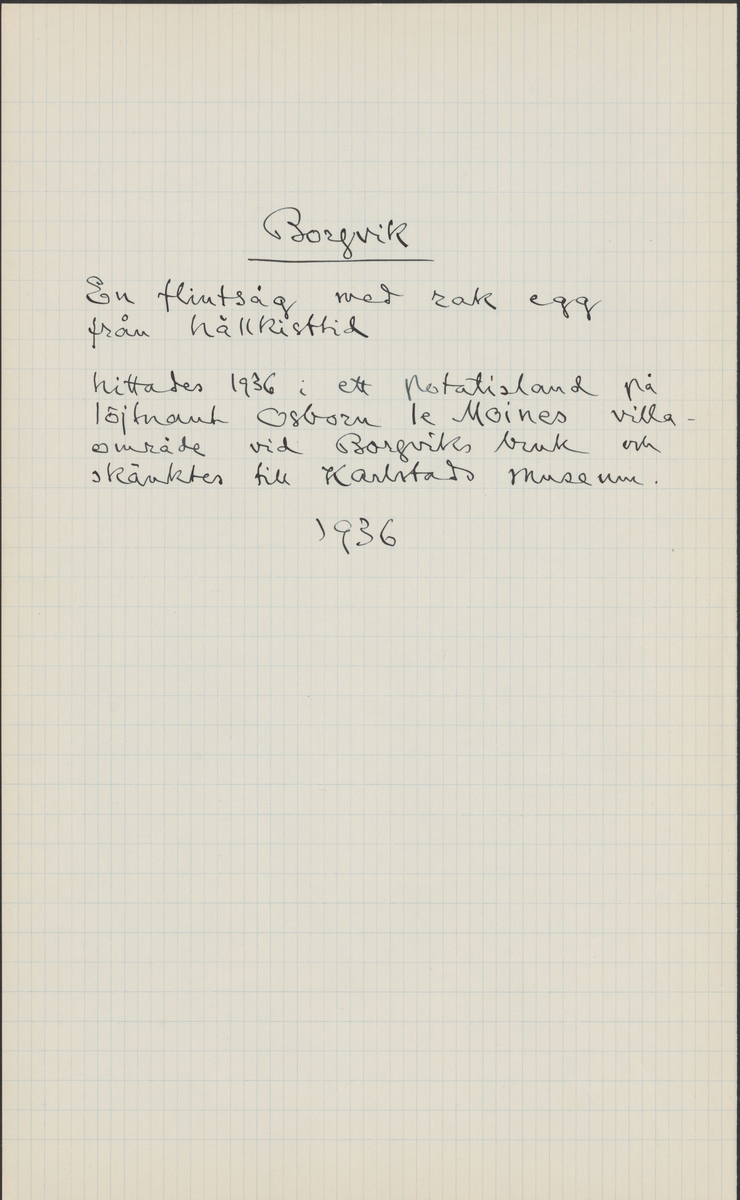 Borgvik
En flintsåg med rak egg
från hällkisttid
hittades 1936 i ett potatisland på
löjtnant Osborn le Moines villa-
område vid Borgviks bruk och
skänktes till Karlstads museum.
1936